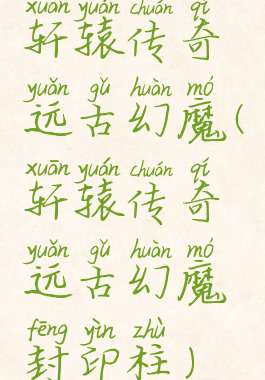 xuān yuán chuán qí
轩辕传奇
yuǎn gǔ huàn mó
远古幻魔(
xuān yuán chuán qí
轩辕传奇
yuǎn gǔ huàn mó
远古幻魔
fēng yìn zhù
封印柱)